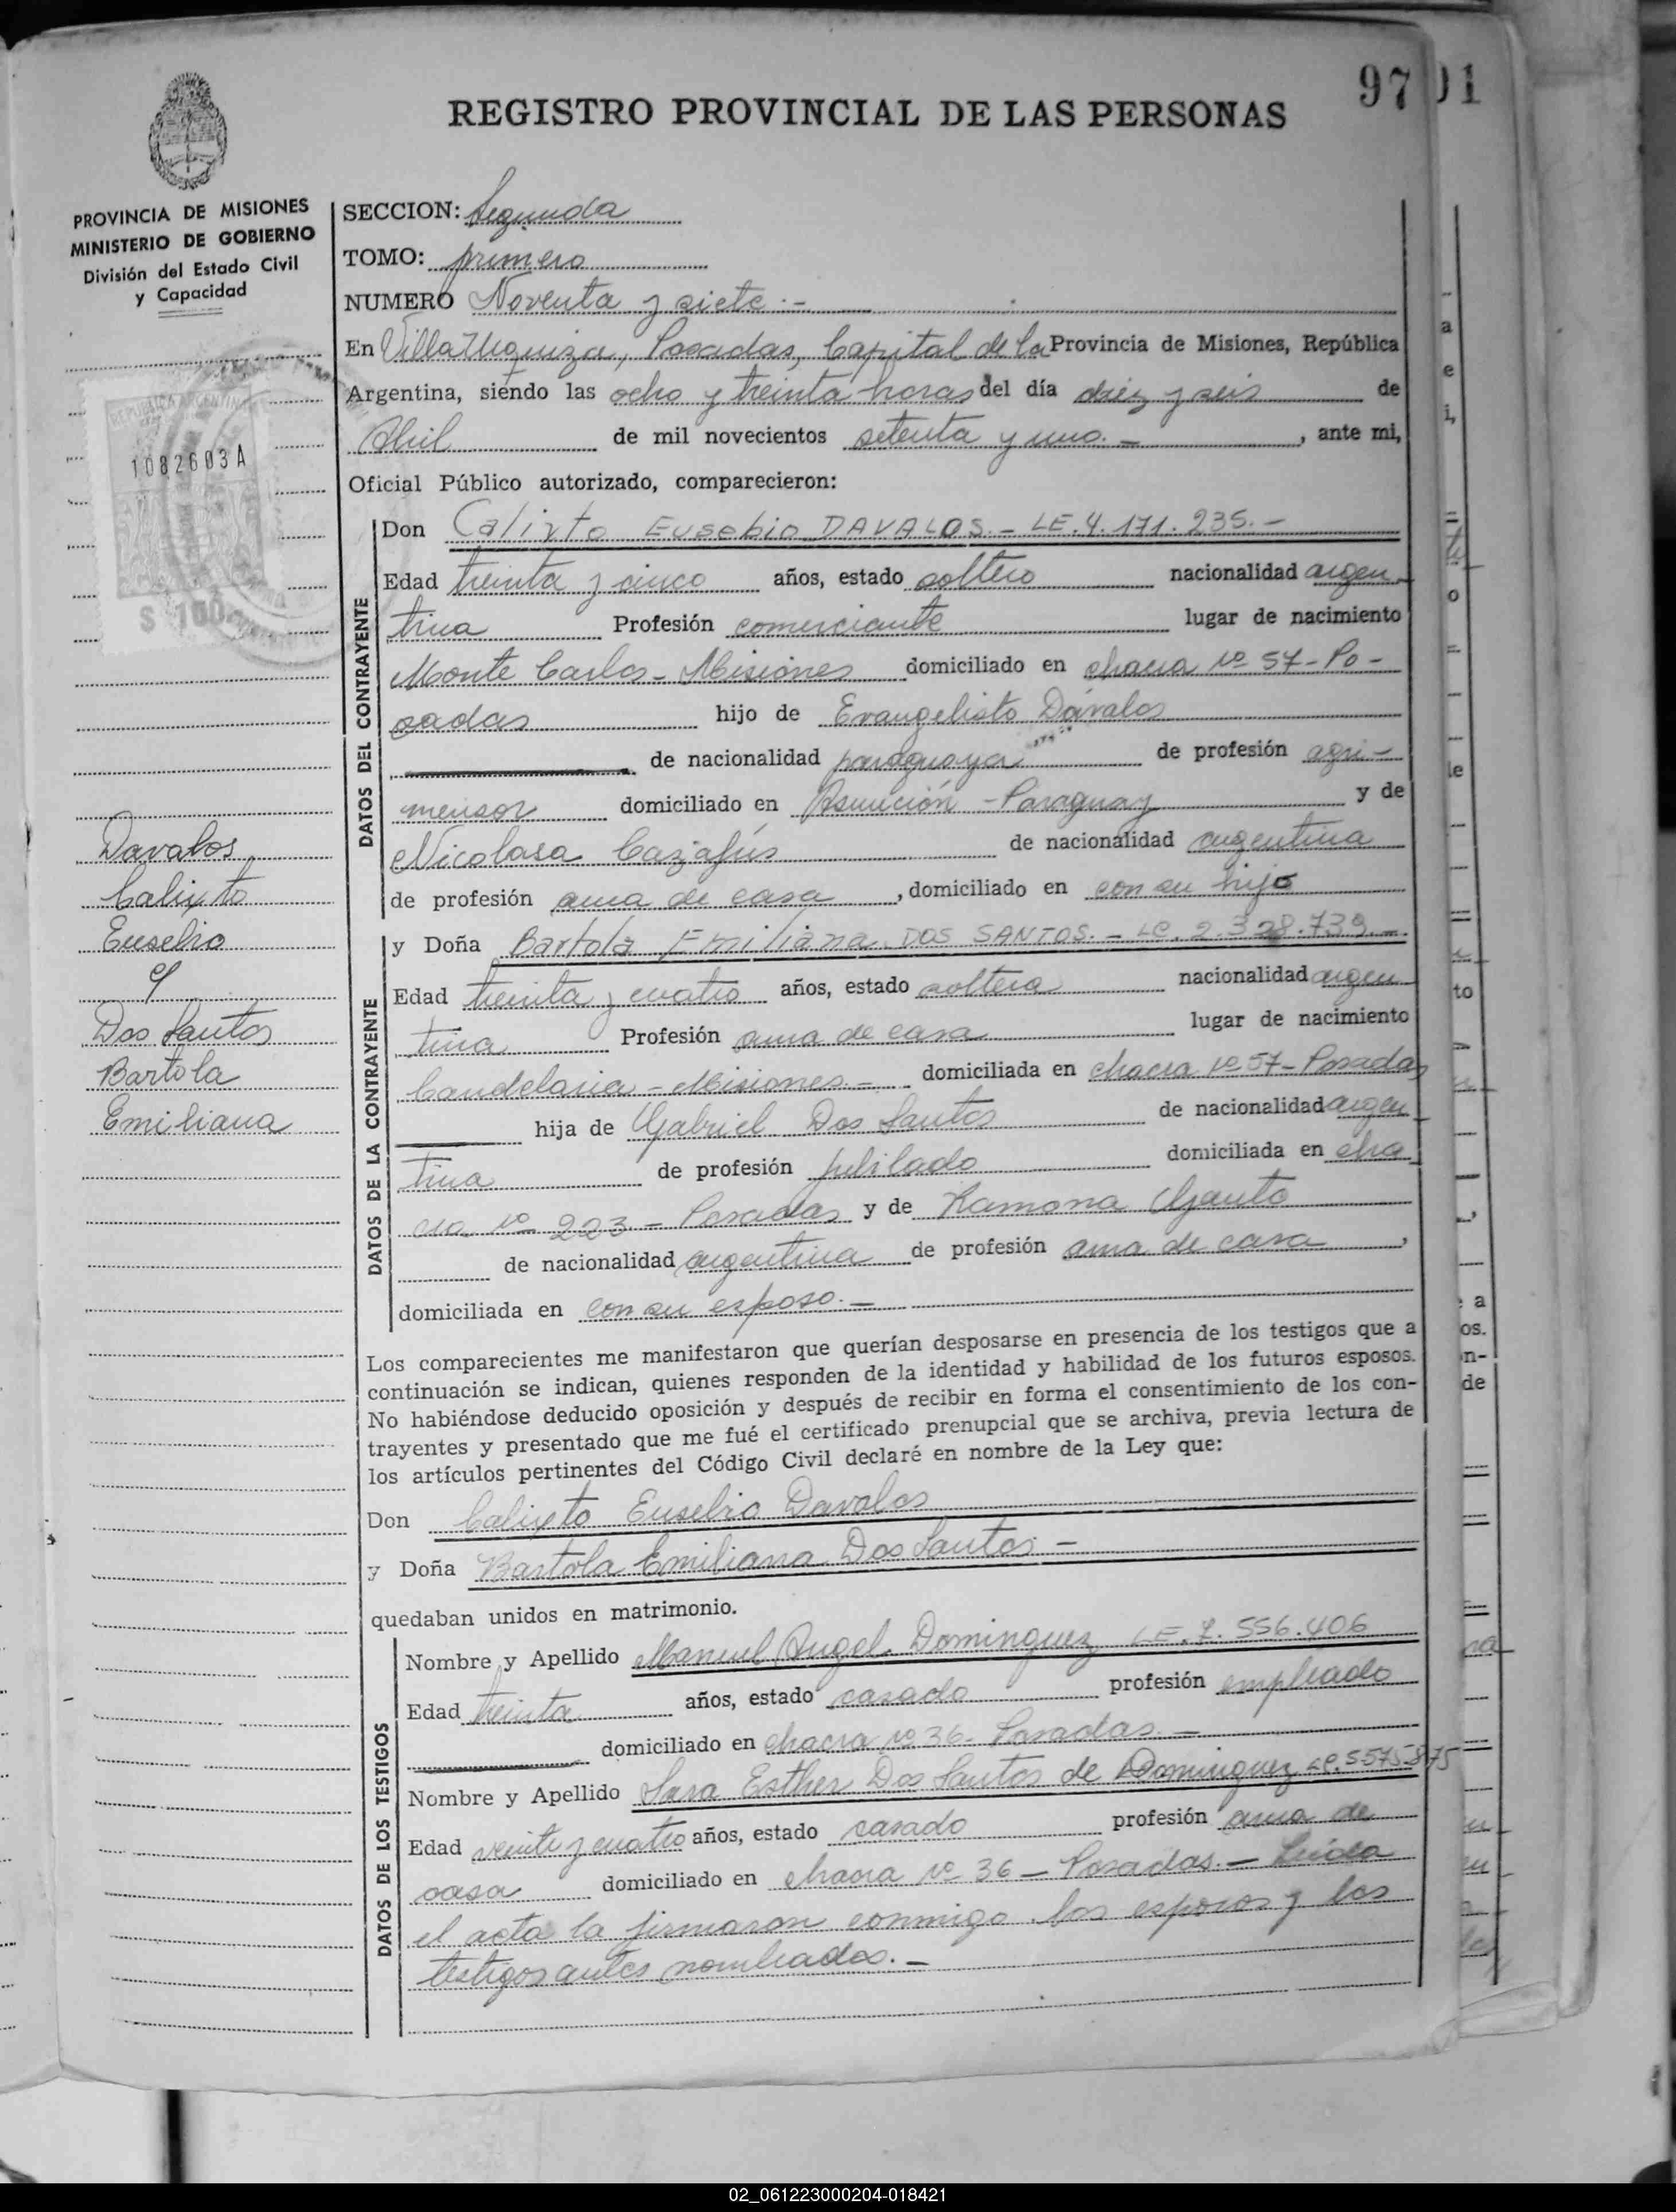 97
01
REGISTRO PROVINCIAL DE LAS PERSONAS
PROVINCIA DE MISIONES
MINISTERIO DE GOBIERNO
División del Estado Civil
y Capacidad
REPUBLICA ARGENTINA
1082603A
$ 100
Davalos
Calixto
Eusebio
y
Dos Santos
Bartola
Emiliana
SECCION: Segunda
TOMO: primero
NUMERO Noventa y siete.-
En Villa Urquiza, Posadas, Capital de la Provincia de Misiones, República
Argentina, siendo las ocho y treinta horas del día diez y seis de
Abril de mil novecientos setenta y uno.-, ante mi,
Oficial Público autorizado, comparecieron:
DATOS DEL CONTRAYENTE
Don Calixto Eusebio DAVALOS.- LE.4.171.235.-
Edad treinta y cinco años, estado soltero nacionalidad argen-
tina Profesión comerciante lugar de nacimiento
Monte Carlos - Misiones domiciliado en chacra nº 57-Po-
sadas hijo de Evangelisto Dávalos
de nacionalidad paraguaya de profesión agri-
mensor domiciliado en Asunción - Paraguay y de
Nicolasa de nacionalidad argentina
de profesión ama de casa, domiciliado en con su hijo
DATOS DE LA CONTRAYENTE
y Doña Bartola Emiliana DOS SANTOS.- LC. 2.328.739.-
Edad treinta y cuatro años, estado soltera nacionalidad argen
tina Profesión ama de casa lugar de nacimiento
Candelaria - Misiones.- domiciliada en chacra nº 57- Posadas
hija de Gabriel Dos Santos de nacionalidad argen
tina de profesión jubilado domiciliada en cha
cra nº 223 - Posadas y de Ramona
de nacionalidad argentina de profesión ama de casa,
domiciliada en con su esposo.-
Los comparecientes me manifestaron que querían desposarse en presencia de los testigos que a
continuación se indican, quienes responden de la identidad y habilidad de los futuros esposos.
No habiéndose deducido oposición y después de recibir en forma el consentimiento de los con-
trayentes y presentado que me fué el certificado prenupcial que se archiva, previa lectura de
los artículos pertinentes del Código Civil declaré en nombre de la Ley que:
Don Calixto Eusebio Davalos
y Doña Bartola Emiliana Dos Santos.-
quedaban unidos en matrimonio.
DATOS DE LOS TESTIGOS
Nombre y Apellido Manuel Angel Dominguez LE. 7. 556.406
Edad treinta años, estado casado profesión empleado
domiciliado en chacra nº 36- Posadas.-
Nombre y Apellido Sara Esther Dos Santos de Dominguez LC.5575875
Edad veinte y cuatro años, estado casado profesión ama de
casa domiciliado en chacra nº 36 - Posadas.- Leída
el acta la firmaron conmigo los esposos y los
testigos antes nombrados.-
02_061223000204-018421